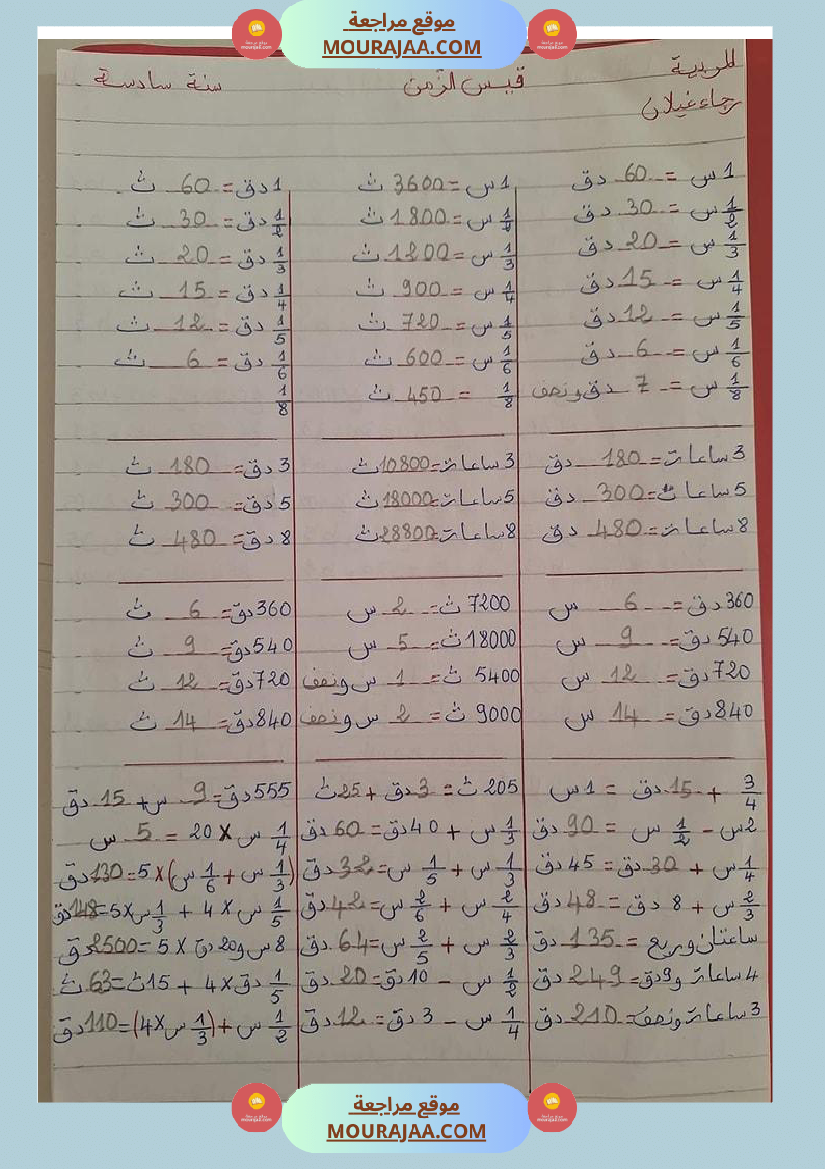 موقع مراجعة
MOURAJAA.COM
المربية
رجاء غيلان
قيس الزمن
سنة سادسة
1 س = 60 دق
1/2 س = 30 دق
1/3 س = 20 دق
1/4 س = 15 دق
1/5 س = 12 دق
1/6 س = 6 دق
1/8 س = 7 دق ونصف
3 ساعات = 180 دق
5 ساعات = 300 دق
8 ساعات = 480 دق
360 دق = 6 س
540 دق = 9 س
720 دق = 12 س
840 دق = 14 س
3/4 + 15 دق = 1 س
2 س - 1/2 س = 90 دق
1/4 س + 30 دق = 45 دق
2/3 س + 8 دق = 48 دق
ساعتان وربع = 135 دق
4 ساعات و 9 دق = 249 دق
3 ساعات ونصف = 210 دق
1 س = 3600 ث
1/2 س = 1800 ث
1/3 س = 1200 ث
1/4 س = 900 ث
1/5 س = 720 ث
1/6 س = 600 ث
1/8 = 450 ث
3 ساعات = 10800 ث
5 ساعات = 18000 ث
8 ساعات = 28800 ث
7200 ث = 2 س
18000 ث = 5 س
5400 ث = 1 س ونصف
9000 ث = 2 س ونصف
205 ث = 3 دق + 25 ث
1/3 س + 40 دق = 60 دق
1/3 س + 1/5 س = 32 دق
2/4 س + 2/6 س = 42 دق
2/3 س + 2/5 س = 64 دق
1/2 س - 10 دق = 20 دق
1/4 س - 3 دق = 12 دق
1 دق = 60 ث
1/2 دق = 30 ث
1/3 دق = 20 ث
1/4 دق = 15 ث
1/5 دق = 12 ث
1/6 دق = 6 ث
1/8
3 دق = 180 ث
5 دق = 300 ث
8 دق = 480 ث
360 دق = 6 ث
540 دق = 9 ث
720 دق = 12 ث
840 دق = 14 ث
555 دق = 9 س + 15 دق
1/4 س × 20 = 5 س
(1/3 س + 1/6 س) × 5 = 130 دق
1/5 س × 4 + 1/3 س × 5 = 148 دق
8 س و 20 دق × 5 = 2500 دق
1/5 دق × 4 + 15 ث = 63 ث
1/2 س + (1/3 س × 4) = 110 دق
موقع مراجعة
MOURAJAA.COM